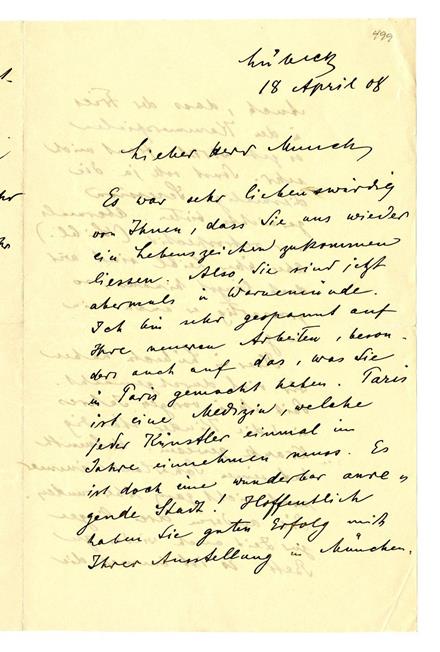 499
Lübeck
18 April 08
Lieber Herr Munch,
Es war sehr liebenswürdig
von Ihnen, dass Sie uns wieder
ein Lebenszeichen zukommen
liessen. Also Sie sind jetzt
abermals in Warnemünde.
Ich bin sehr gespannt auf
Ihre neueren Arbeiten, beson-
ders auch auf das, was Sie
in Paris gemacht haben. Paris
ist eine Medizin, welche
jeder Künstler einmal im
Jahre einnehmen muss. Es
ist doch eine wunderbar anre-
gende Stadt! Hoffentlich
haben Sie guten Erfolg mit
Ihrer Ausstellung in München.